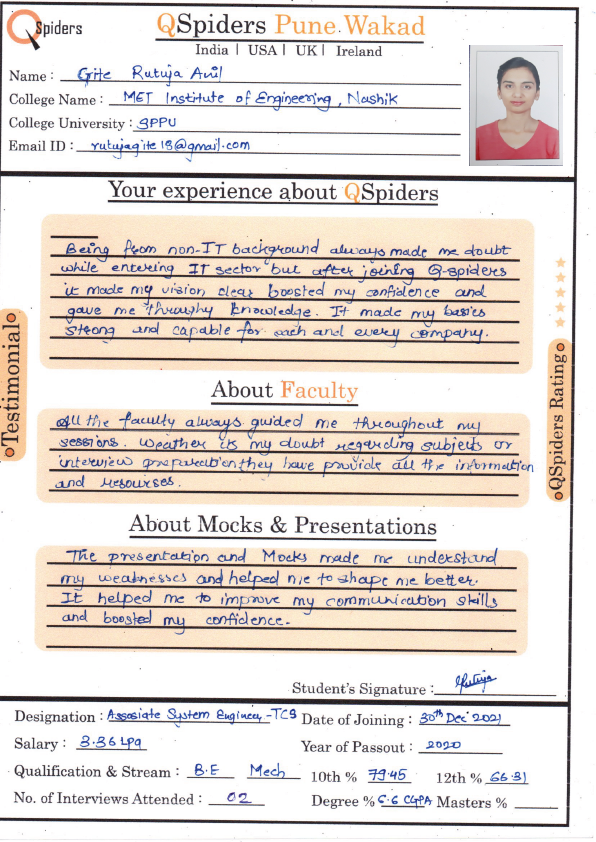 QSpiders
QSpiders Pune Wakad
India | USA | UK | Ireland
Name : Gite Rutuja Anil
College Name : MET Institute of Engineering, Nashik
College University : SPPU
Email ID : rutujagite18@gmail.com
Your experience about QSpiders
Being from non-IT background always made me doubt
while entering IT sector but after joining Q-spiders
it made my vision clear boosted my confidence and
gave me throughy knowledge. It made my basics
strong and capable for each and every company.
Testimonial
QSpiders Rating
About Faculty
All the faculty always guided me throughout my
sessions. Weather its my doubt regarding subjects or
interview preparation, they have provide all the information
and resourses.
About Mocks & Presentations
The presentation and Mocks made me understand
my weaknesses and helped me to shape me better.
It helped me to improve my communication skills
and boosted my confidence.
Student's Signature : Rutuja
Designation : Assosiate System Engineer -TCS Date of Joining : 30th Dec 2021
Salary : 3.36 Lpa Year of Passout : 2020
Qualification & Stream : B.E Mech 10th % 79.45 12th % 66.31
No. of Interviews Attended : 02 Degree % 6.6 CGPA Masters %